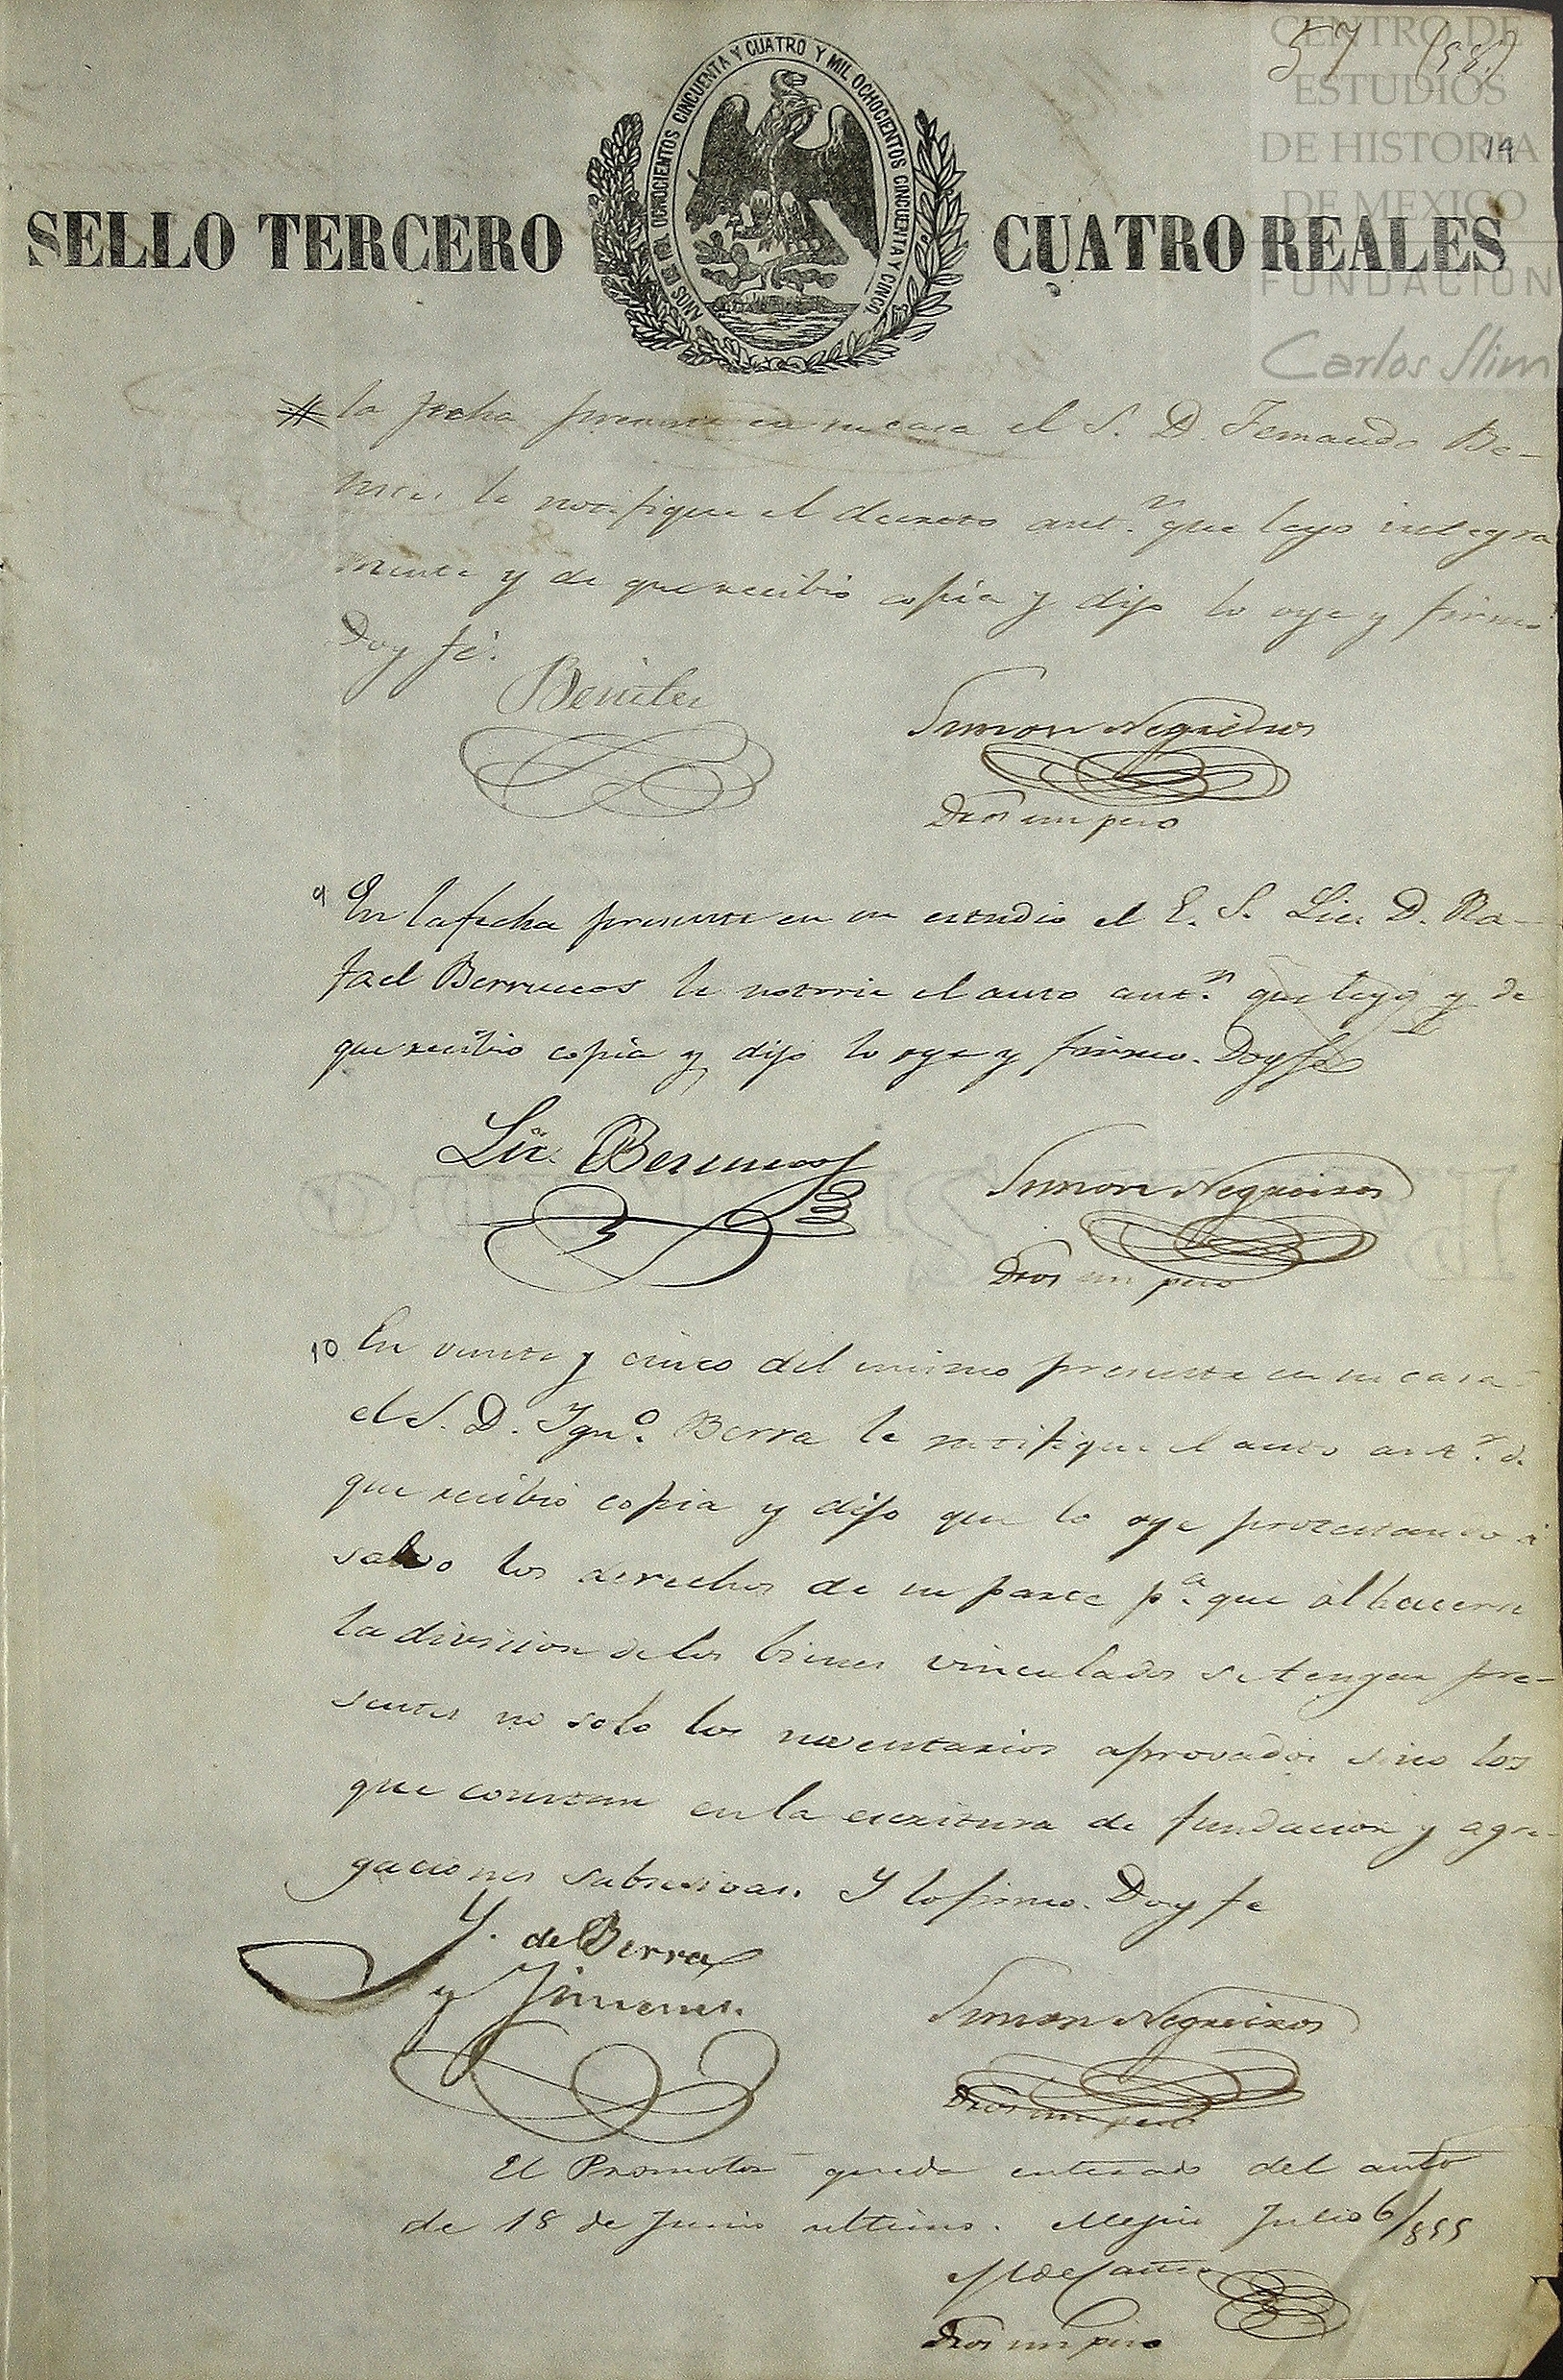 CENTRO DE
ESTUDIOS
DE HISTORIA
DE MEXICO
FUNDACION
Carlos Slim
57 (58)
14
AÑOS DE MIL OCHOCIENTOS CINCUENTA Y CUATRO Y MIL OCHOCIENTOS CINCUENTA Y CINCO
SELLO TERCERO CUATRO REALES
la fecha presente en su casa el S. D. Fernando Be-
nites le notifique el decreto ant.r que leyo integra
mente y de que recibio copia y dijo lo oye y firmó
Doy fé.
Benites
Simon Negreiros
Dros un peso
9 En la fecha presente en su estudio el E. S. Lic. D. Ra-
fael Berruecos le notorie el auto ant.r que leyó y de
que recibio copia y dijo lo oye y firmo. Doy fe
Lic. Berruecos
Simon Negreiros
Dros un peso
10 En veinte y cinco del mismo presente en su casa
el S. D. Ygn.o Berra le notifique el auto ant.r d.
que recibió copia y dijo que lo oye protestando á
salvo los derechos de su parte p.a que al hacerse
la division de los bienes vinculados se tengan pre-
sentes no solo los inventarios aprovados sino los
que constan en la escritura de fundacion y agre-
gaciones subsesivas. Y lo firmo. Doy fe
Y. de Berra
y Jimenes.
Simon Negreiros
Dros un peso
El Promotor queda enterado del auto
de 18 de Junio ultimo. Mejico Julio 6/855
Dros un peso